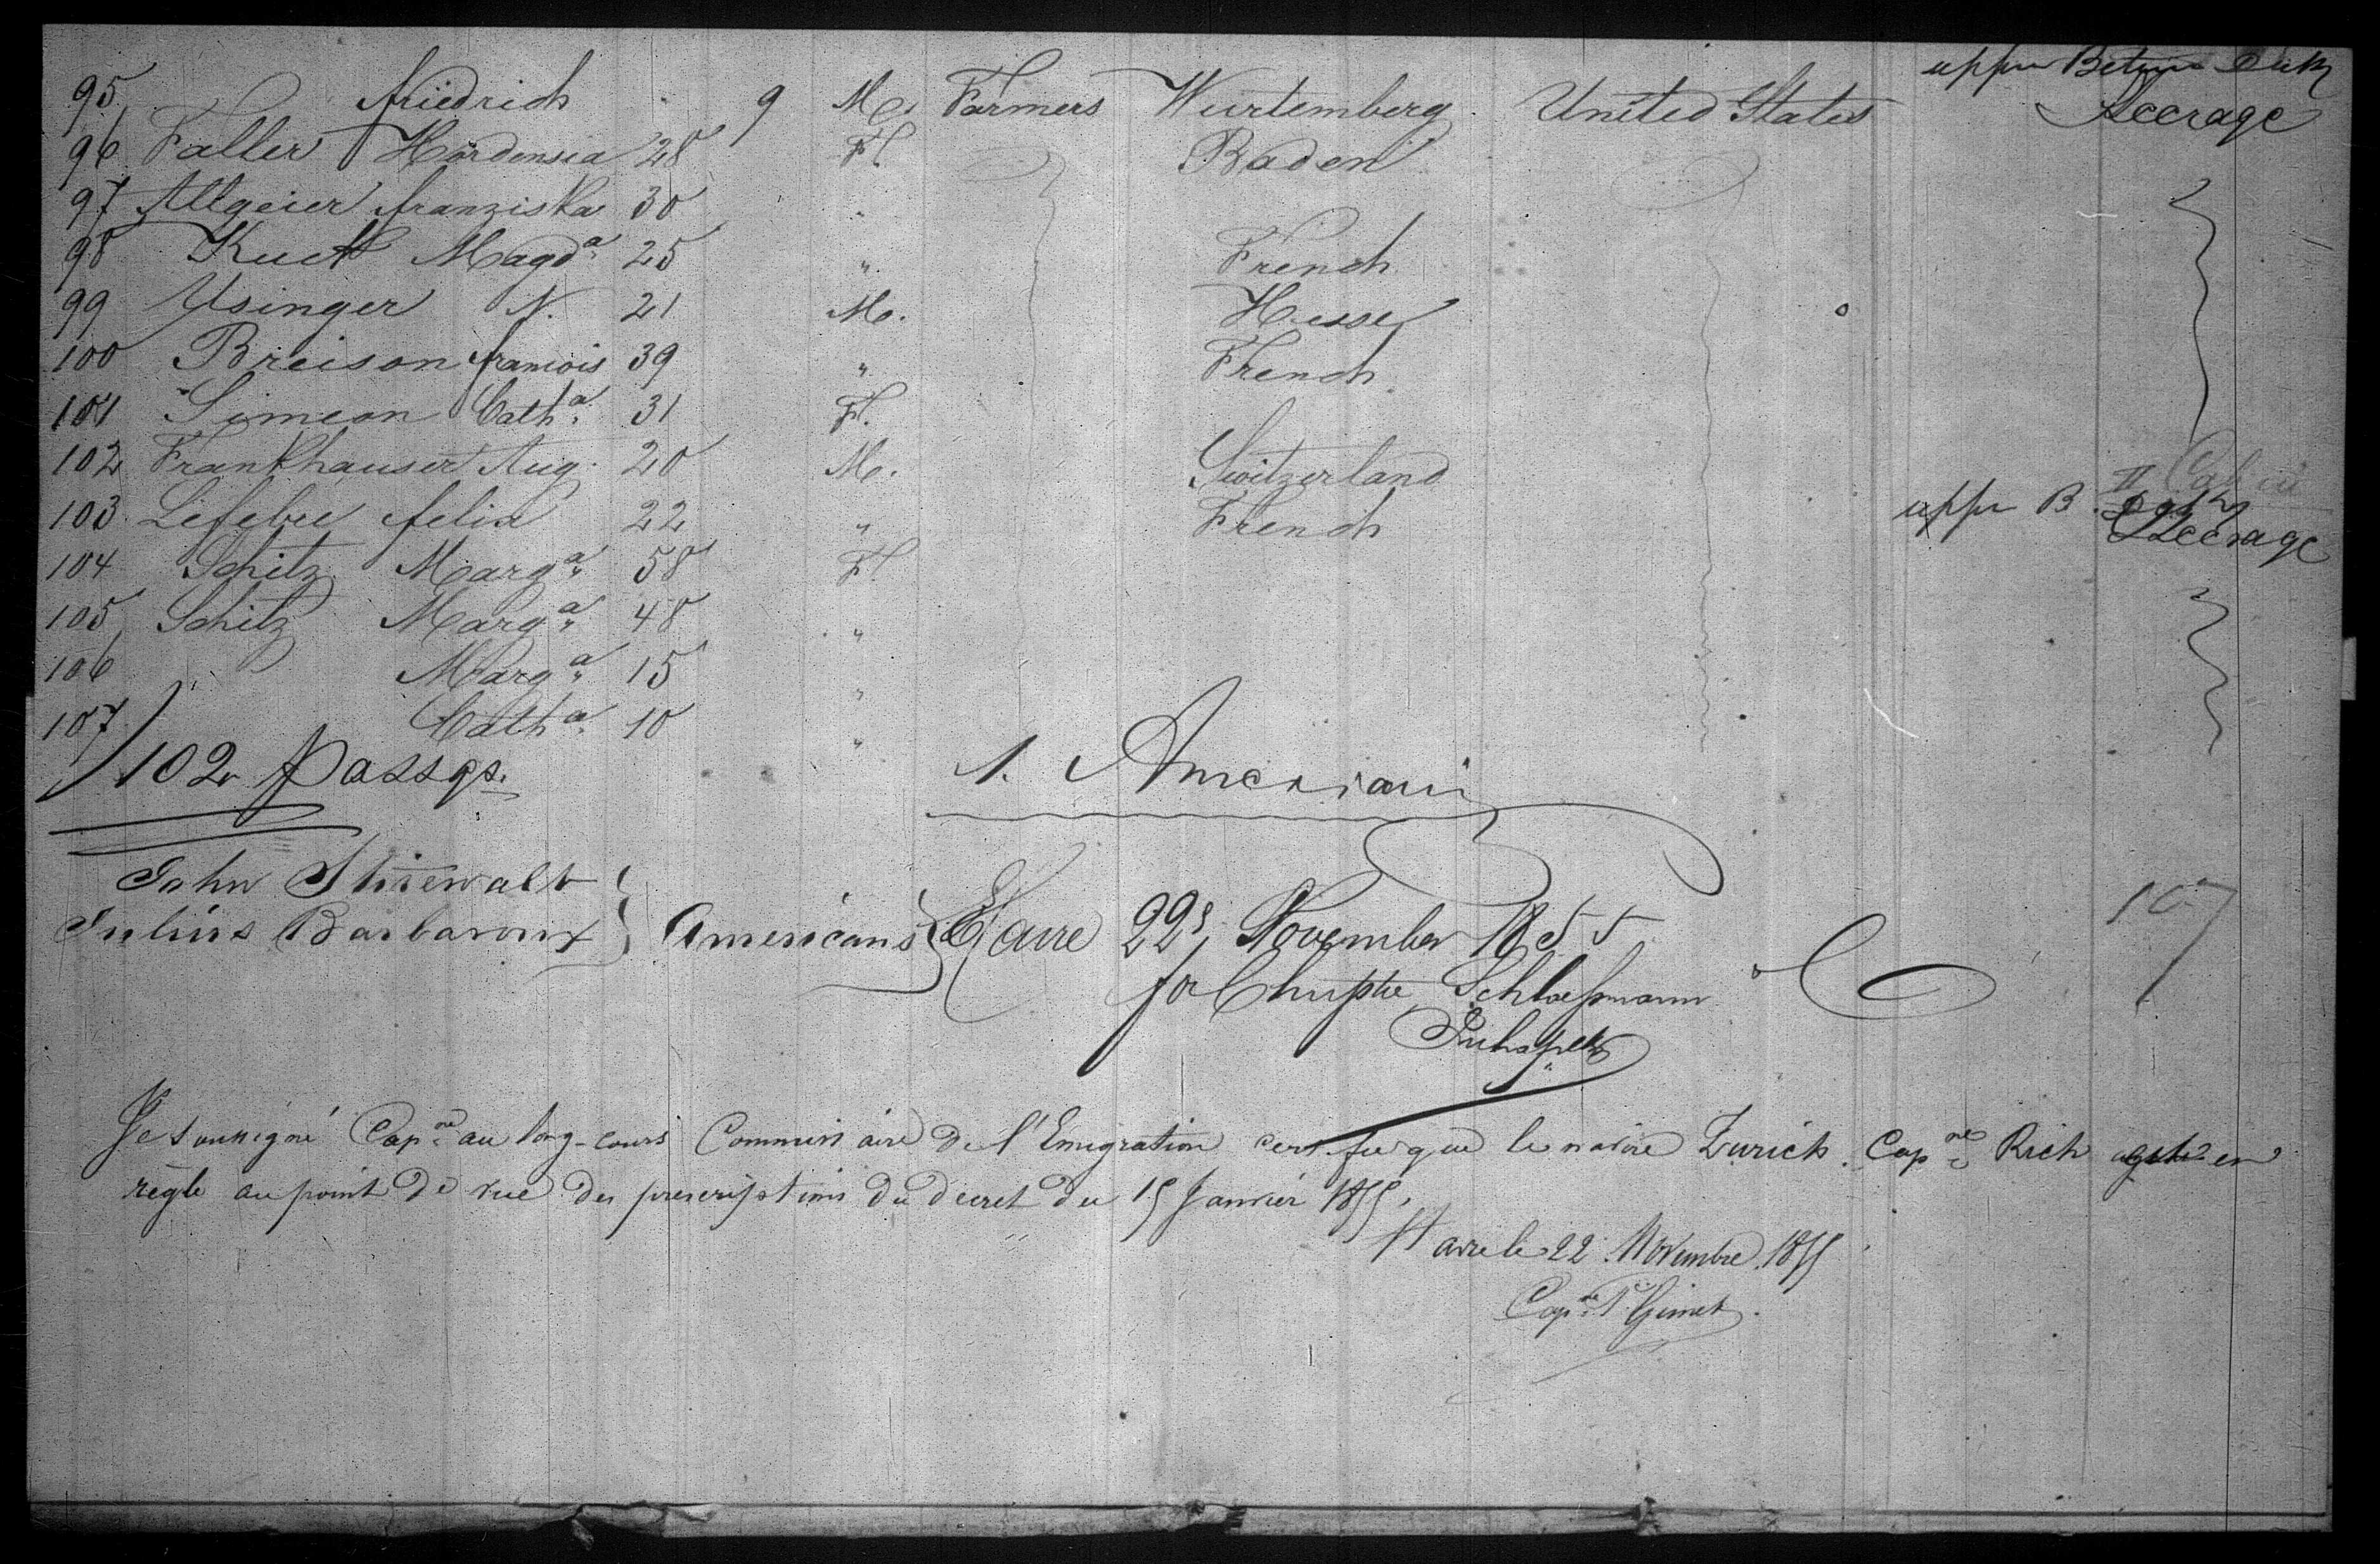 upper Betwn Deck
95 Friedrich 9 M. Farmers Wurtemberg United States Steerage
96 Faller Hordensia 28 Fl. Baden
97 Allgeier franziska 30 "
98 Kuck Magdª 25 " French
99 Ysinger N. 21 M. Hesse
100 Breison francois 39 " French
101 Simeon Cathª 31 Fl.
102 Frankhauser Aug. 20 M. Switzerland II Cabin
103 Lefebre felix 22 " French uppr B. Deck
Steerage
104 Schitz Margª 58 Fl.
105 Schitz Margª 48 "
106 Margª 15 "
107 Cathª 10 "
102 passgs. 1. American
John Stirewalt
Julius Barbaroux } Americans
107
Havre 22d, November 1855
for Chrystie Schloessmann
Je soussigné Capne au long-cours Commissaire de l'Emigration certifie que le navire Zurich Capne Rich en
règle au point de vue des prescriptions du decret du 15 Janvier 1855.
Havre le 22 Novembre 1855
Capne